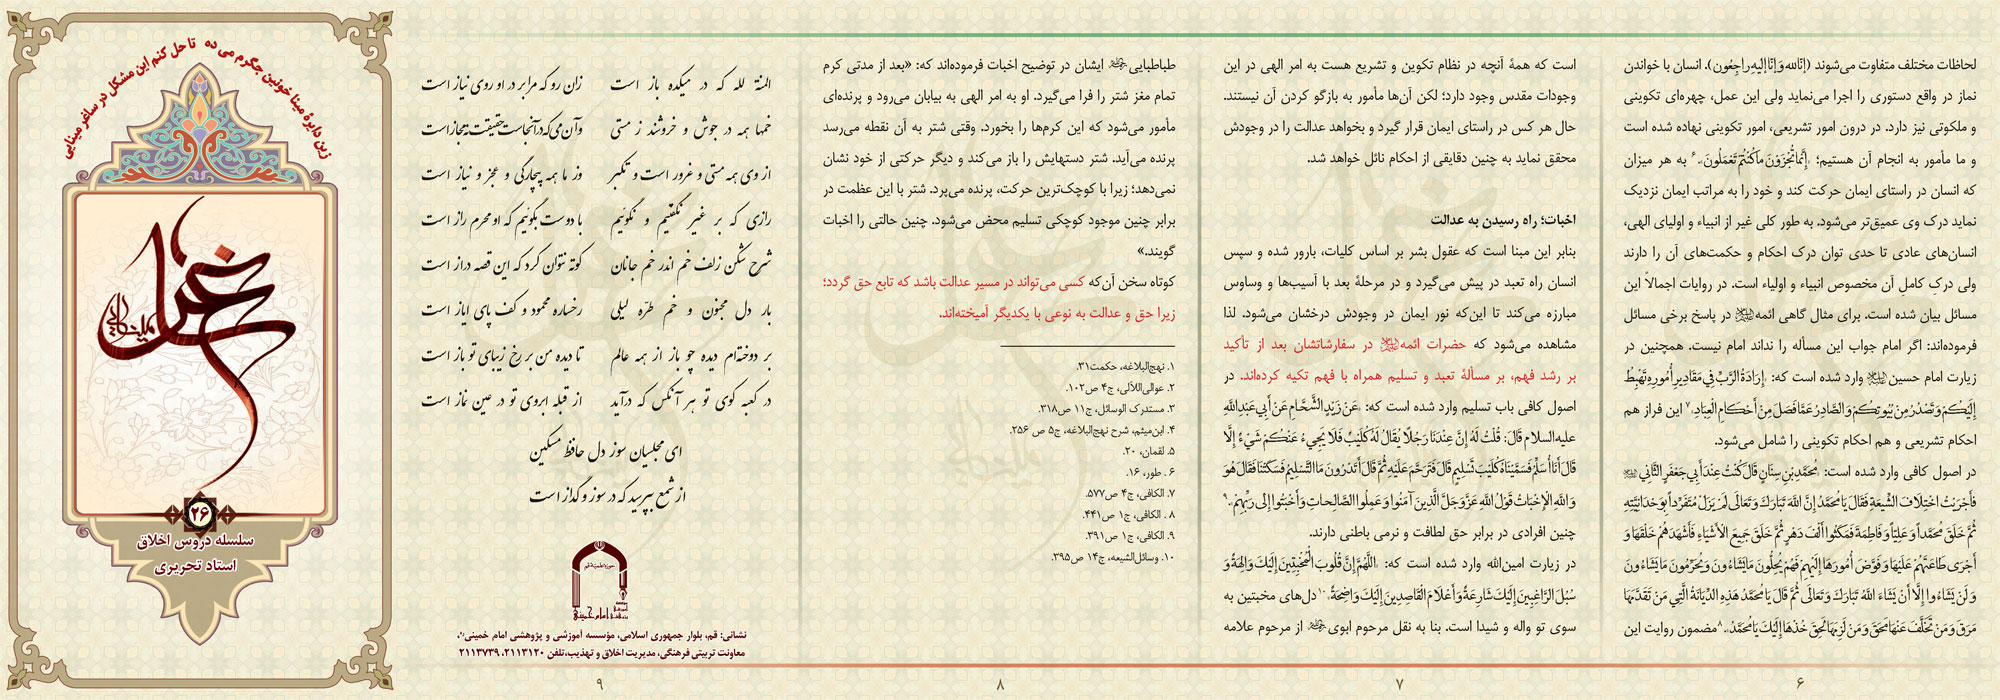 لحاظات مختلف متفاوت می‌شوند (إنّالله وَ إنّا إلیهِ راجِعون). انسان با خواندن
نماز در واقع دستوری را اجرا می‌نماید ولی این عمل، چهره‌ای تکوینی
و ملکوتی نیز دارد. در درون امور تشریعی، امور تکوینی نهاده شده است
و ما مأمور به انجام آن هستیم؛ إِنَّمَا تُجْزَوْنَ مَا كُنْتُمْ تَعْمَلُونَ.۶ به هر میزان
که انسان در راستای ایمان حرکت کند و خود را به مراتب ایمان نزدیک
نماید درک وی عمیق‌تر می‌شود. به طور کلی غیر از انبیاء و اولیای الهی،
انسان‌های عادی تا حدی توان درک احکام و حکمت‌های آن را دارند
ولی درکِ کاملِ آن مخصوص انبیاء و اولیاء است. در روایات اجمالاً این
مسائل بیان شده است. برای مثال گاهی ائمه در پاسخ برخی مسائل
فرموده‌اند: اگر امام جواب این مسأله را نداند امام نیست. همچنین در
زیارت امام حسین وارد شده است که: إِرَادَةُ الرَّبِّ فِي مَقَادِيرِ أُمُورِهِ تَهْبِطُ
إِلَيْكُمْ وَ تَصْدُرُ مِنْ بُيُوتِكُمْ وَ الصَّادِرُ عَمَّا فَصَلَ مِنْ أَحْكَامِ الْعِبَادِ.۷ این فراز هم
احکام تشریعی و هم احکام تکوینی را شامل می‌شود.
در اصول کافی وارد شده است: مُحَمَّدِ بْنِ سِنَانٍ قَالَ كُنْتُ عِنْدَ أَبِي جَعْفَرٍ الثَّانِي
فَأَجْرَيْتُ اخْتِلَافَ الشِّيعَةِ فَقَالَ يَا مُحَمَّدُ إِنَّ اللَّهَ تَبَارَكَ وَ تَعَالَى لَمْ يَزَلْ مُتَفَرِّداً بِوَحْدَانِيَّتِهِ
ثُمَّ خَلَقَ مُحَمَّداً وَ عَلِيّاً وَ فَاطِمَةَ فَمَكَثُوا أَلْفَ دَهْرٍ ثُمَّ خَلَقَ جَمِيعَ الْأَشْيَاءِ فَأَشْهَدَهُمْ خَلْقَهَا وَ
أَجْرَى طَاعَتَهُمْ عَلَيْهَا وَ فَوَّضَ أُمُورَهَا إِلَيْهِمْ فَهُمْ يُحِلُّونَ مَا يَشَاءُونَ وَ يُحَرِّمُونَ مَا يَشَاءُونَ
وَ لَنْ يَشَاءُوا إِلَّا أَنْ يَشَاءَ اللَّهُ تَبَارَكَ وَ تَعَالَى ثُمَّ قَالَ يَا مُحَمَّدُ هَذِهِ الدِّيَانَةُ الَّتِي مَنْ تَقَدَّمَهَا
مَرَقَ وَ مَنْ تَخَلَّفَ عَنْهَا مُحِقَ وَ مَنْ لَزِمَهَا لَحِقَ خُذْهَا إِلَيْكَ يَا مُحَمَّدُ.۸ مضمون روایت این
۶
است که همهٔ آنچه در نظام تکوین و تشریع هست به امر الهی در این
وجودات مقدس وجود دارد؛ لکن آن‌ها مأمور به بازگو کردن آن نیستند.
حال هر کس در راستای ایمان قرار گیرد و بخواهد عدالت را در وجودش
محقق نماید به چنین دقایقی از احکام نائل خواهد شد.
اخبات؛ راه رسیدن به عدالت
بنابر این مبنا است که عقول بشر بر اساس کلیات، بارور شده و سپس
انسان راه تعبد در پیش می‌گیرد و در مرحلهٔ بعد با آسیب‌ها و وساوس
مبارزه می‌کند تا این‌که نور ایمان در وجودش درخشان می‌شود. لذا
مشاهده می‌شود که حضرات ائمه در سفارشاتشان بعد از تأکید
بر رشد فهم، بر مسألهٔ تعبد و تسلیم همراه با فهم تکیه کرده‌اند. در
اصول کافی باب تسلیم وارد شده است که: عَنْ زَيْدٍ الشَّحَّامِ عَنْ أَبِي عَبْدِ اللَّهِ
علیه‌السلام قَالَ: قُلْتُ لَهُ إِنَّ عِنْدَنَا رَجُلًا يُقَالُ لَهُ كُلَيْبٌ فَلَا يَجِيءُ عَنْكُمْ شَيْءٌ إِلَّا
قَالَ أَنَا أُسَلِّمُ فَسَمَّيْنَاهُ كُلَيْبَ تَسْلِيمٍ قَالَ فَتَرَحَّمَ عَلَيْهِ ثُمَّ قَالَ أَ تَدْرُونَ مَا التَّسْلِيمُ فَسَكَتْنَا فَقَالَ هُوَ
وَ اللَّهِ الْإِخْبَاتُ قَوْلُ اللَّهِ عَزَّ وَ جَلَّ الَّذِينَ آمَنُوا وَ عَمِلُوا الصَّالِحاتِ وَ أَخْبَتُوا إِلى رَبِّهِمْ.۹
چنین افرادی در برابر حق لطافت و نرمی باطنی دارند.
در زیارت امین‌الله وارد شده است که: اللَّهُمَّ إِنَّ قُلُوبَ الْمُخْبِتِينَ إِلَيْكَ وَالِهَةٌ وَ
سُبُلَ الرَّاغِبِينَ إِلَيْكَ شَارِعَةٌ وَ أَعْلَامَ الْقَاصِدِينَ إِلَيْكَ وَاضِحَةٌ.۱۰ دل‌های مخبتین به
سوی تو واله و شیدا است. بنا به نقل مرحوم ابوی از مرحوم علامه
۷
طباطبایی ایشان در توضیح اخبات فرموده‌اند که: «بعد از مدتی کرم
تمام مغز شتر را فرا می‌گیرد. او به امر الهی به بیابان می‌رود و پرنده‌ای
مأمور می‌شود که این کرم‌ها را بخورد. وقتی شتر به آن نقطه می‌رسد
پرنده می‌آید. شتر دستهایش را باز می‌کند و دیگر حرکتی از خود نشان
نمی‌دهد؛ زیرا با کوچک‌ترین حرکت، پرنده می‌پرد. شتر با این عظمت در
برابر چنین موجود کوچکی تسلیم محض می‌شود. چنین حالتی را اخبات
گویند.»
کوتاه سخن آن‌که کسی می‌تواند در مسیر عدالت باشد که تابع حق گردد؛
زیرا حق و عدالت به نوعی با یکدیگر آمیخته‌اند.
۱. نهج‌البلاغه، حکمت۳۱.
۲. عوالی‌اللآلی، ج۴ ص۱۰۲.
۳. مستدرک الوسائل، ج۱۱ ص۳۱۸.
۴. ابن‌میثم، شرح نهج‌البلاغه، ج۵ ص ۲۵۶.
۵. لقمان، ۲۰.
۶ . طور، ۱۶.
۷. الکافی، ج۴ ص۵۷۷.
۸ . الکافی، ج۱ ص۴۴۱.
۹. الکافی، ج۱ ص۳۹۱.
۱۰. وسائل‌الشیعه، ج۱۴ ص۳۹۵.
۸
المنة لله که در میکده باز است زان رو که مرا بر در او روی نیاز است
خمها همه در جوش و خروشند ز مستی وآن می که در آنجاست حقیقت نه مجاز است
از وی همه مستی و غرور است و تکبر وز ما همه بیچارگی و عجز و نیاز است
رازی که بر غیر نگفتیم و نگوئیم با دوست بگوئیم که او محرم راز است
شرح شکن زلف خم اندر خم جانان کوته نتوان کرد که این قصه دراز است
بار دل مجنون و خم طره لیلی رخساره محمود و کف پای ایاز است
بر دوخته‌ام دیده چو باز از همه عالم تا دیده من بر رخ زیبای تو باز است
در کعبه کوی تو هر آنکس که درآید از قبله ابروی تو در عین نماز است
ای مجلسیان سوز دل حافظ مسکین
از شمع بپرسید که در سوز و گداز است
حوزه علمیه قم
مؤسسه آموزشی و پژوهشی امام خمینی
نشانی: قم، بلوار جمهوری اسلامی، مؤسسه آموزشی و پژوهشی امام خمینی
معاونت تربیتی فرهنگی، مدیریت اخلاق و تهذیب،تلفن ۲۱۱۳۱۲۰، ۲۱۱۳۷۳۹
۹
زین دایرهٔ مینا خونین جگرم می ده تا حل کنم این مشکل در ساغر مینایی
۲۶
سلسله دروس اخلاق
استاد تحریری